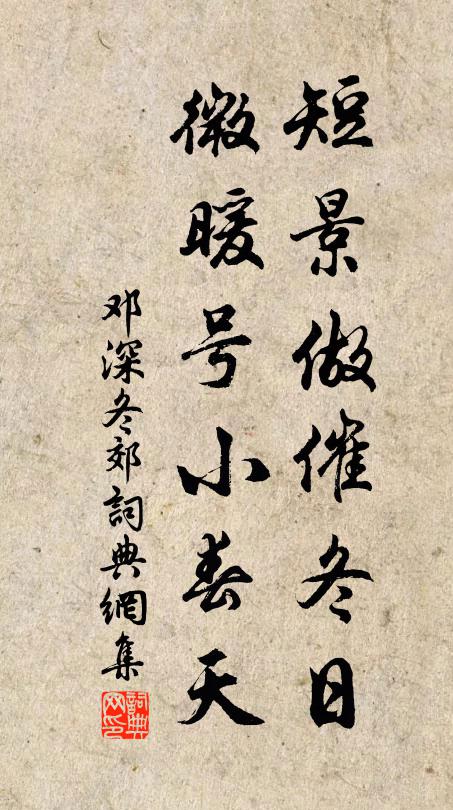 短景做催冬日
微暖号小春天
邓深冬郊詞典網集
詞典网印